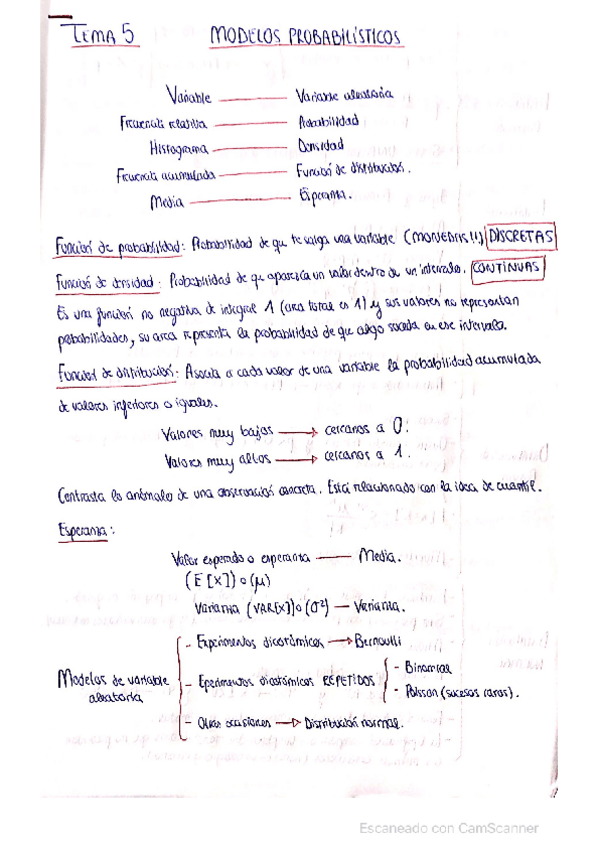 TEMA 5 MODELOS PROBABILÍSTICOS
Variable — Variable aleatoria
Frecuencia relativa — Probabilidad
Histograma — Densidad
Frecuencia acumulada — Función de distribución.
Media — Esperanza.
Función de probabilidad: Probabilidad de que te salga una variable (MONEDAS!!) DISCRETAS
Función de densidad: Probabilidad de que aparezca un valor dentro de un intervalo. CONTINUAS
Es una función no negativa de integral 1 (area total es 1) y sus valores no representan
probabilidades, su area representa la probabilidad de que algo suceda en ese intervalo.
Función de distribución: Asocia a cada valor de una variable la probabilidad acumulada
de valores inferiores o iguales.
Valores muy bajos → cercanos a 0.
Valores muy altos → cercanos a 1.
Contrasta lo anómalo de una observación concreta. Está relacionado con la idea de cuantil.
Esperanza:
Valor esperado o esperanza — Media.
(E[X]) o (μ)
Varianza (VAR[X]) o (σ²) — Varianza.
Modelos de variable aleatoria
- Experimentos dicotómicos → Bernoulli
- Experimentos dicotómicos REPETIDOS
- Binomial
- Poisson (sucesos raros).
- Otras ocasiones → Distribución normal.
Escaneado con CamScanner